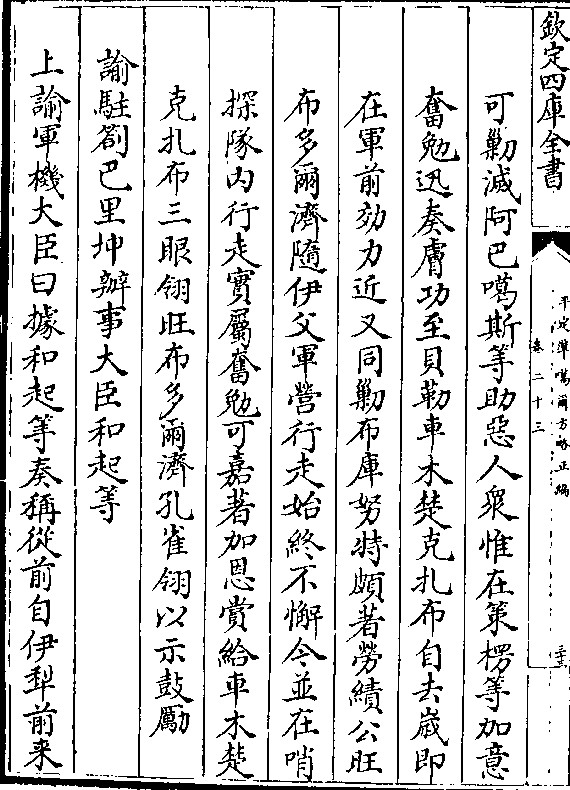 欽定四庫全書
平定準噶爾方略正編
卷二十三
可勦滅阿巴噶斯等助惡人衆惟在策楞等加意
奮勉迅奏膚功至貝勒車木楚克扎布自去歲即
在軍前効力近又同勦布庫努特頗著勞績公旺
布多爾濟隨伊父軍營行走始終不懈今並在哨
探隊内行走實屬奮勉可嘉著加恩賞給車木楚
克扎布三眼翎旺布多爾濟孔雀翎以示鼓勵
諭駐劄巴里坤辦事大臣和起等
上諭軍機大臣曰據和起等奏稱從前自伊犁前来